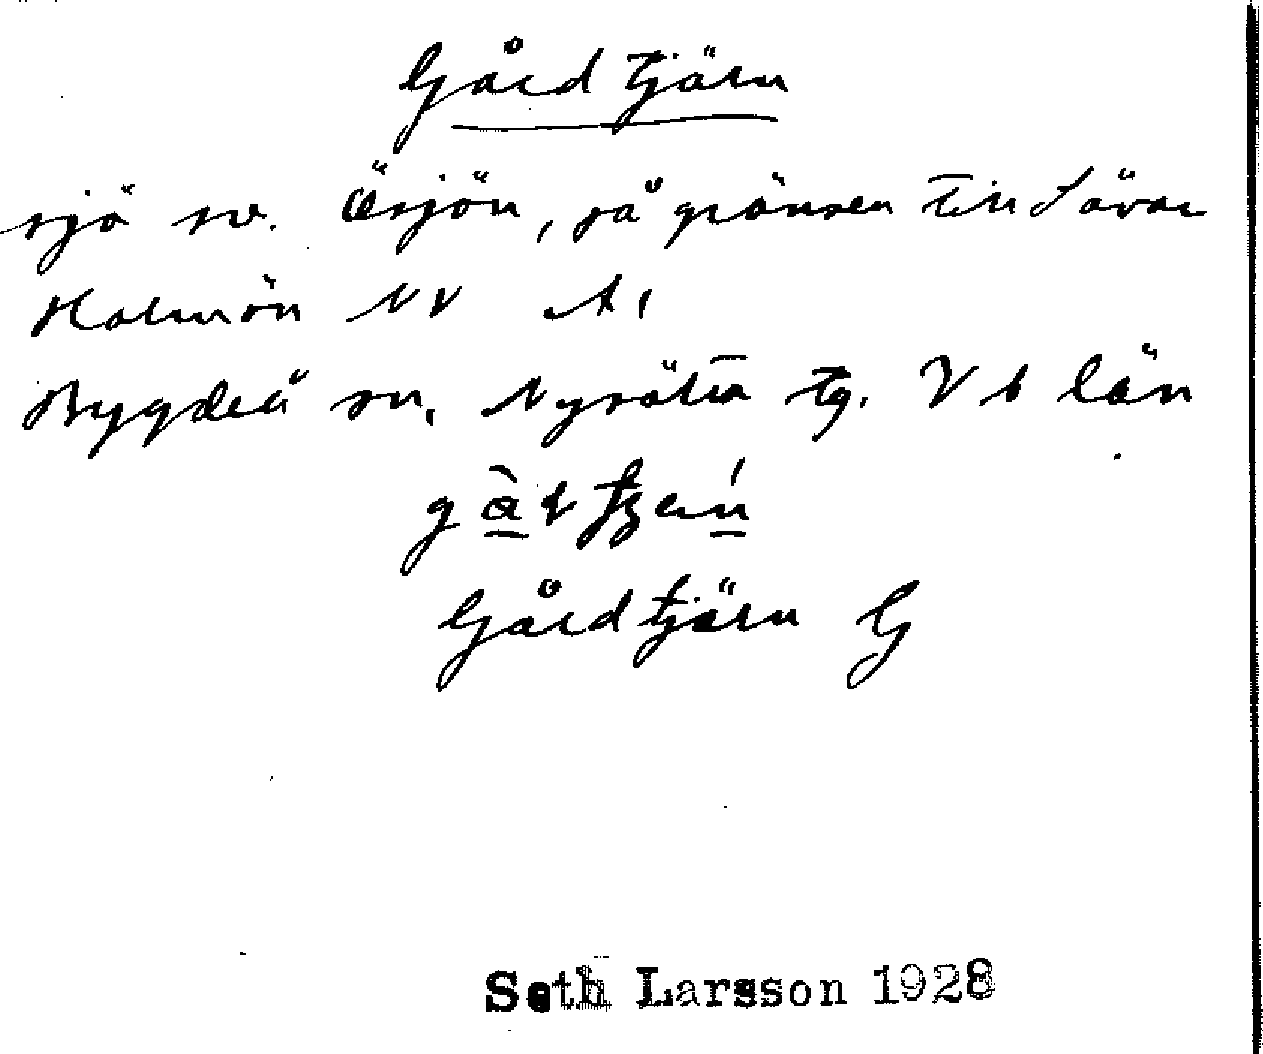 Gårdtjärn
sjö sv. Ösjön, på gränsen till Sävar
Holmön NV A1
Bygdeå sn. Nysätra tg. Vb län
Gårdtjärn G
Seth Larsson 1928